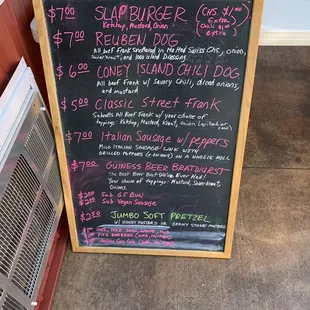 $7.00 SLAP BURGER (CHS. $1.00
Ketchup, Mustard, Onion Extra
$7.00 REUBEN DOG
All beef Frank Smothered in Melted Swiss Chs, onion,
Sauerkraut, and 1000 island Dressing
$6.00 CONEY ISLAND CHILI DOG
All beef Frank w/ Savory Chili, diced onions,
and mustard
$5.00 Classic Street Frank
All Beef Frank w/ your choice of
toppings: Ketchup, Mustard, Kraut, onion,
$7.00 Italian Sausage w/ peppers
MILD ITALIAN SAUSAGE LINK WITH
GRILLED PEPPERS (+ ONIONS) ON A HOAGIE ROLL
$7.00 GUINESS BEER BRATWURST
The Best Beer Bratwurst Ever Had!
Your choice of toppings: Mustard, Sauerkraut,
Onions.
$2.00 Sub GF BUN
$2.00 Sub Vegan Sausage
$2.50 JUMBO SOFT PRETZEL
w/ HONEY MUSTARD or STONE MUSTARD